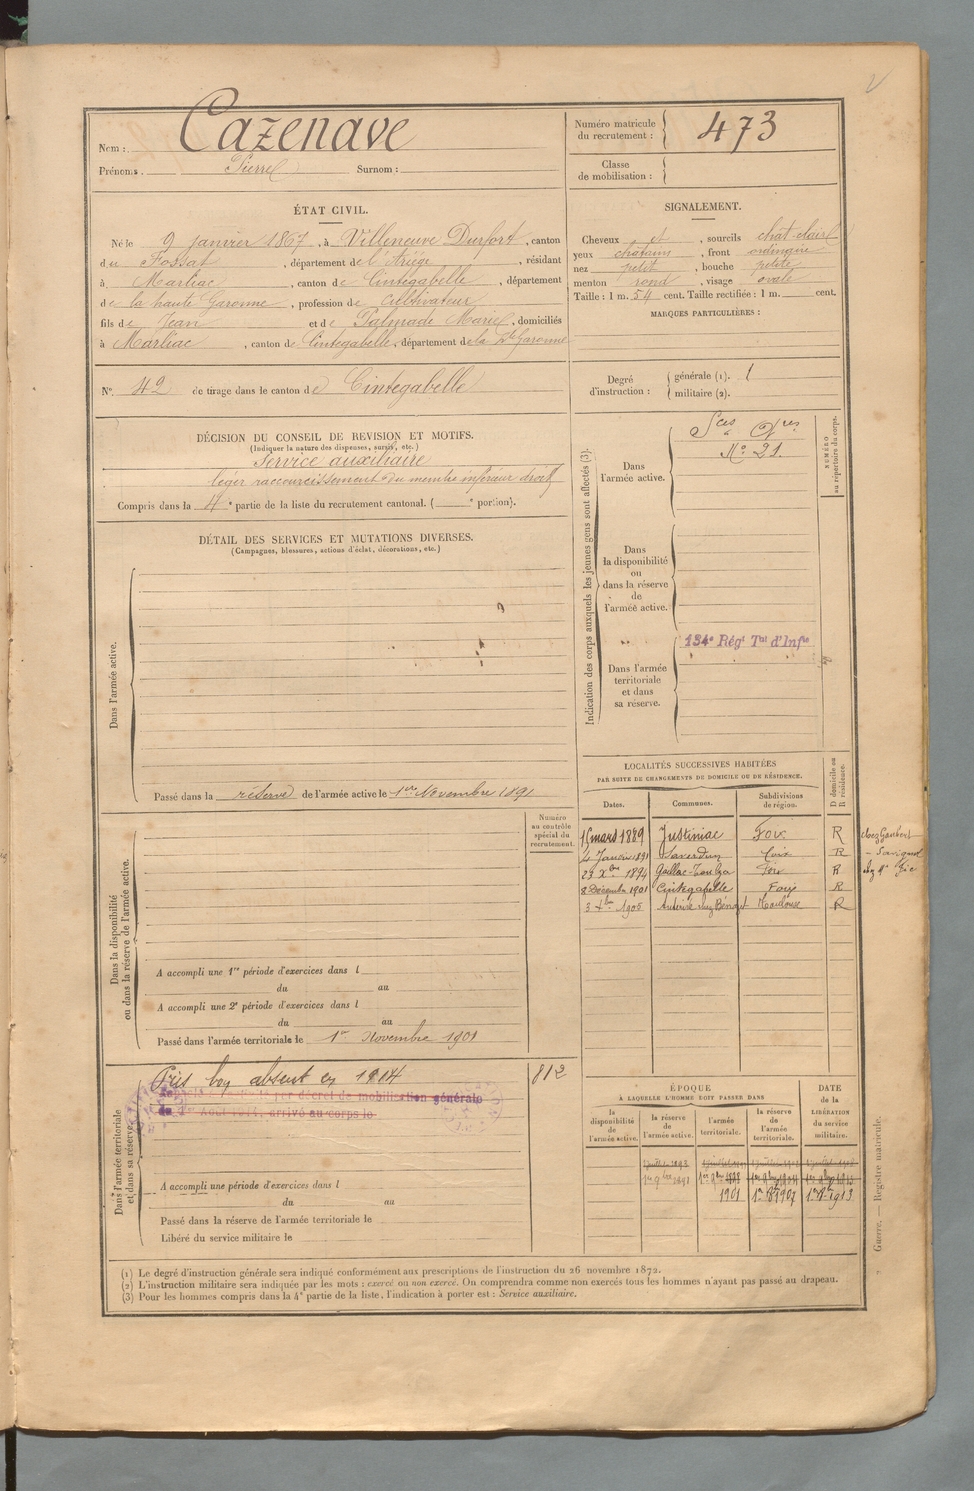 Nom : Cazenave
Prénoms. Pierre Surnom :
Numéro matricule du recrutement : 473
Classe de mobilisation :
ÉTAT CIVIL.
Né le 9 janvier 1867, à Villeneuve Durfort, canton
du Fossat, département de l'Ariège, résidant
à Marliac, canton de Cintegabelle, département
de la haute Garonne, profession de Cultivateur
fils de Jean et de Palmade Marie, domiciliés
à Marliac, canton de Cintegabelle, département de la Hte Garonne
N° 42 de tirage dans le canton de Cintegabelle
SIGNALEMENT.
Cheveux et, sourcils chat-clair
yeux châtains, front ordinaire
nez petit, bouche petite
menton rond, visage ovale
Taille : 1 m. 54 cent. Taille rectifiée : 1 m. cent.
MARQUES PARTICULIÈRES :
Degré d'instruction : générale (1). 1
militaire (2).
DÉCISION DU CONSEIL DE REVISION ET MOTIFS.
(Indiquer la nature des dispenses, sursis, etc.)
Service auxiliaire
léger raccourcissement du membre inférieur droit
Compris dans la 4e partie de la liste du recrutement cantonal. ( e portion).
DÉTAIL DES SERVICES ET MUTATIONS DIVERSES.
(Campagnes, blessures, actions d'éclat, décorations, etc.)
Dans l'armée active.
Passé dans la réserve de l'armée active le 1er Novembre 1891
Indication des corps auxquels les jeunes gens sont affectés (3).
Dans l'armée active.
Sces Qres
N° 21.
NUMÉRO au répertoire du corps.
Dans la disponibilité ou dans la réserve de l'armée active.
Dans l'armée territoriale et dans sa réserve.
134e Régt Tal d'Infie
Dans la disponibilité ou dans la réserve de l'armée active.
Numéro au contrôle spécial du recrutement.
A accompli une 1re période d'exercices dans l
du au
A accompli une 2e période d'exercices dans l
du au
Passé dans l'armée territoriale le 1er Novembre 1901
LOCALITÉS SUCCESSIVES HABITÉES
PAR SUITE DE CHANGEMENTS DE DOMICILE OU DE RÉSIDENCE.
Dates. Communes. Subdivisions de région. D domicile ou R résidence.
mars 1889 Justiniac Foix R chez Gaubert
4 Janvier 1891 Saverdun Foix R
23 Xbre 1894 Gaillac-Toulza Foix R
8 Décembre 1901 Cintegabelle Foix R
1905 Toulouse R
Dans l'armée territoriale et dans sa réserve.
Pris bon absent en 1914
812
par décret de mobilisation générale
du Août 1914, arrivé au corps le
A accompli une période d'exercices dans l
du au
Passé dans la réserve de l'armée territoriale le
Libéré du service militaire le
ÉPOQUE
À LAQUELLE L'HOMME DOIT PASSER DANS
la disponibilité de l'armée active. la réserve de l'armée active. l'armée territoriale. la réserve de l'armée territoriale.
DATE de la LIBÉRATION du service militaire.
1901 1907 1913
Guerre. — Registre matricule.
(1) Le degré d'instruction générale sera indiqué conformément aux prescriptions de l'instruction du 26 novembre 1872.
(2) L'instruction militaire sera indiquée par les mots : exercé ou non exercé. On comprendra comme non exercés tous les hommes n'ayant pas passé au drapeau.
(3) Pour les hommes compris dans la 4e partie de la liste, l'indication à porter est : Service auxiliaire.